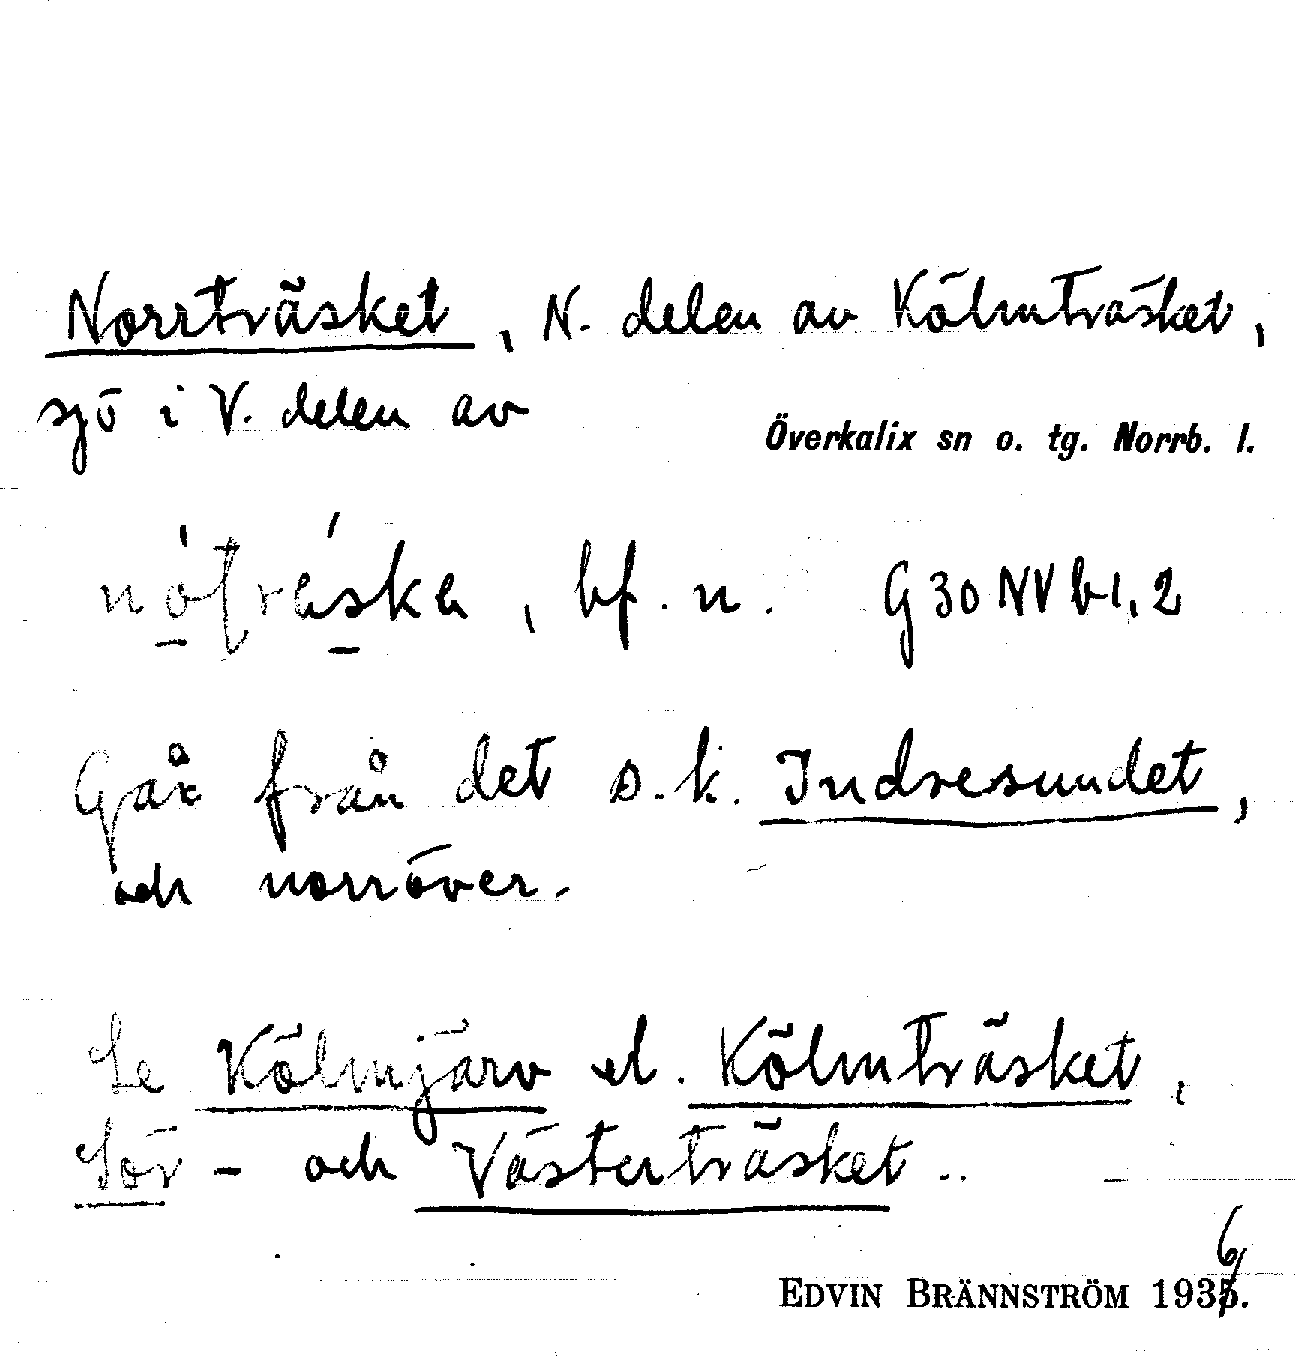 Norrträsket, N. delen av Kölmträsket,
sjö i V. delen av
Överkalix sn o. tg. Norrb. l.
bf. n. G30NVb1,2
Går från det s.k. Indresundet,
och norröver.
Se Kölmjärv el. Kölmträsket,
Sör- och Västerträsket..
EDVIN BRÄNNSTRÖM 1936.